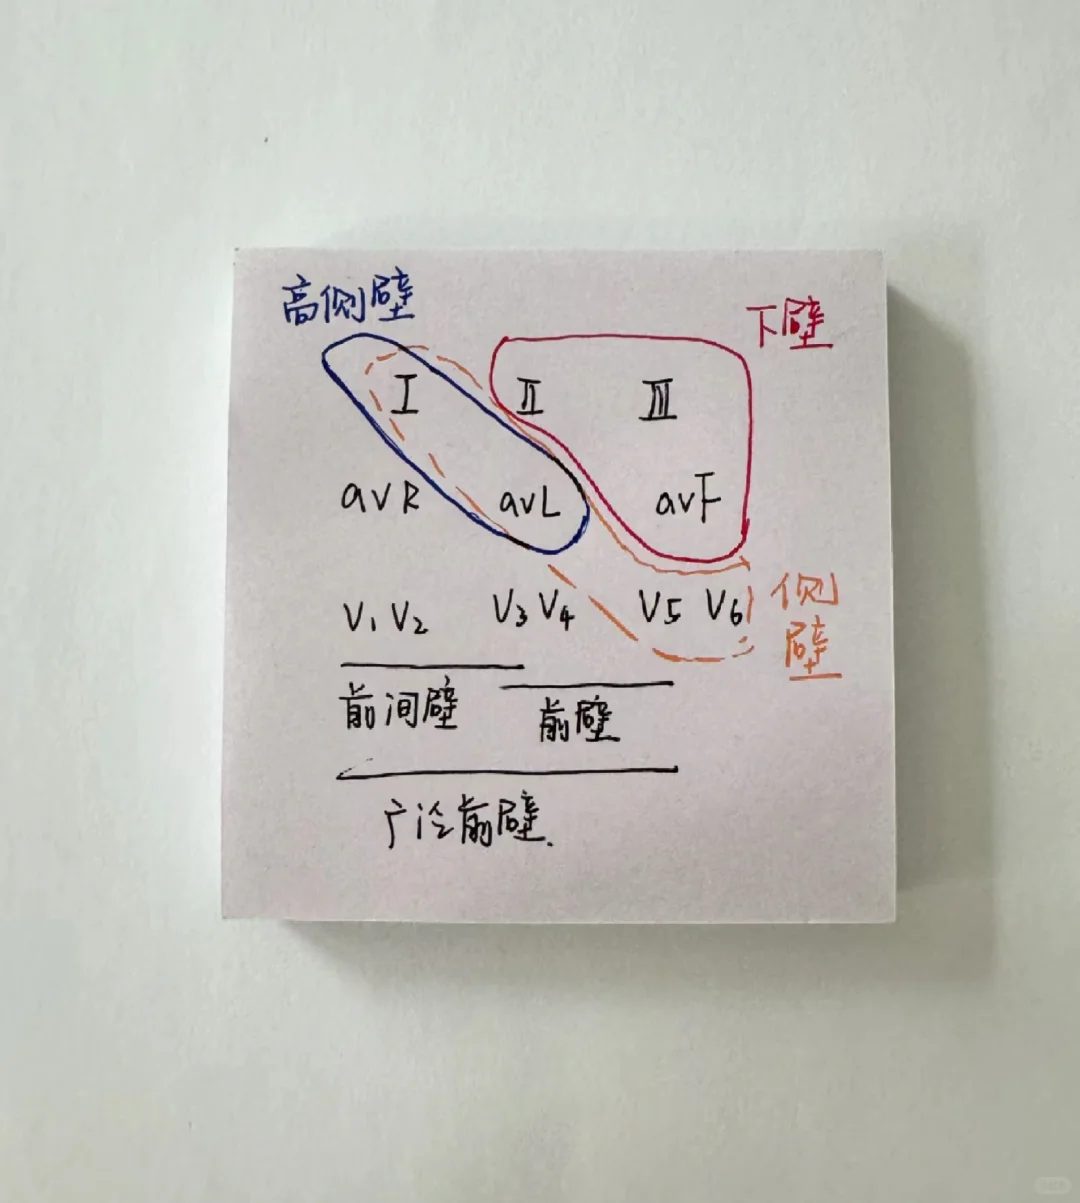 高侧壁
下壁
Ⅰ Ⅱ Ⅲ
avR avL avF
V1 V2 V3 V4 V5 V6
侧壁
前间壁 前壁
广泛前壁.